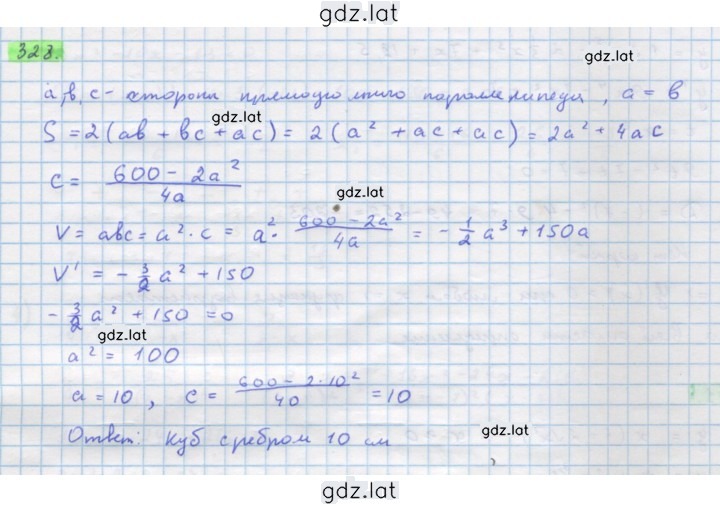 gdz.lat
328.
gdz.lat
a, b, c - стороны прямоугольного параллелипеда, a = b
gdz.lat
S = 2(ab + bc + ac) = 2(a² + ac + ac) = 2a² + 4ac
c = (600 - 2a²)/(4a)
gdz.lat
V = abc = a² · c = a² · (600 - 2a²)/(4a) = - 1/2 a³ + 150a
V' = - 3/2 a² + 150
- 3/2 a² + 150 = 0
gdz.lat
a² = 100
a = 10, c = (600 - 2·10²)/40 = 10
Ответ: куб с ребром 10 см
gdz.lat
gdz.lat